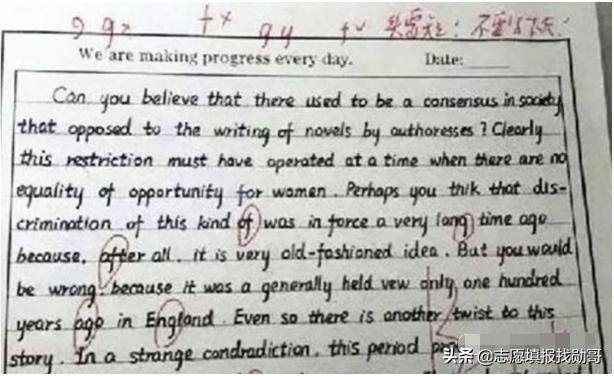 We are making progress every day. Date:
Can you believe that there used to be a consensus in society
that opposed to the writing of novels by authoresses? Clearly
this restriction must have operated at a time when there are no
equality of opportunity for women. Perhaps you thik that dis-
crimination of this kind of was in force a very lang time ago
because, after all, it is very old-fashioned idea. But you would
be wrong. because it was a generally held vew only one hundred
years ago in England. Even so there is another twist to this
story. In a strange condradiction, this period
头条 @志愿填报找勋哥